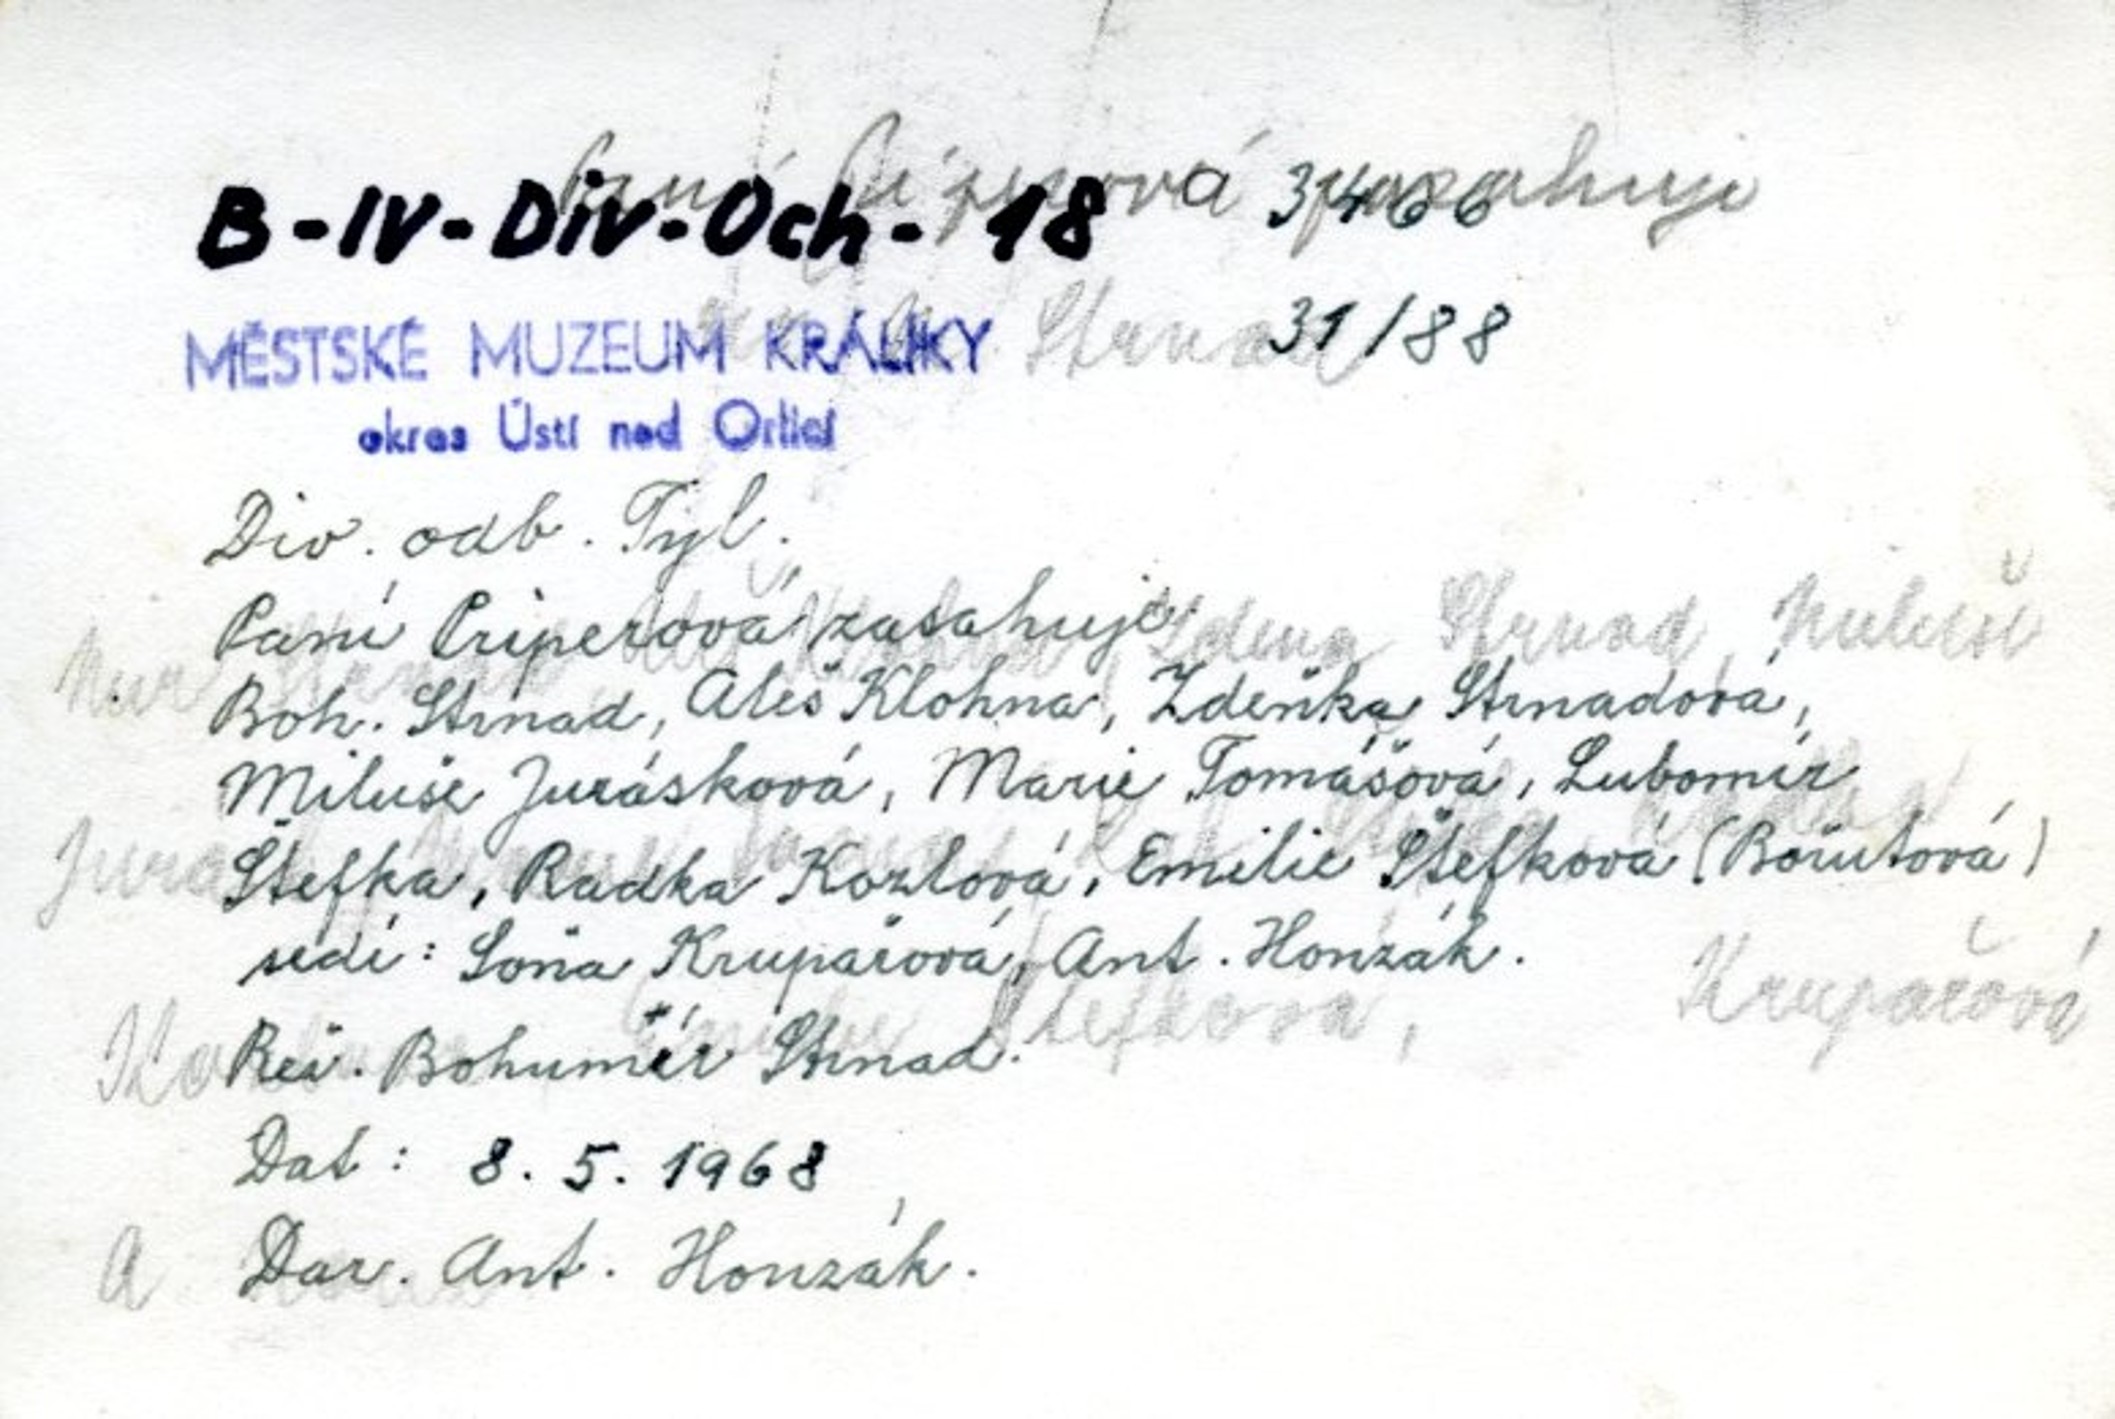 B-IV-Div-Och-18 3466
MĚSTSKÉ MUZEUM KRÁLÍKY 31/88
okres Ústí nad Orlicí
Div. odb. Tyl.
Paní Piperová zasahuje
Boh. Strnad, Aleš Klohna, Zdeňka Strnadová,
Miluše Jurásková, Marie Tomášová, Lubomír
Štefka, Radka Kozlová, Emilie Štefková (Bořutová)
sedí: Soňa Krupařová, Ant. Honzák.
Rež. Bohumír Strnad.
Dat: 8. 5. 1968
Dar. Ant. Honzák.
Strnad
Strnad
Štefková,
Krupařová
A